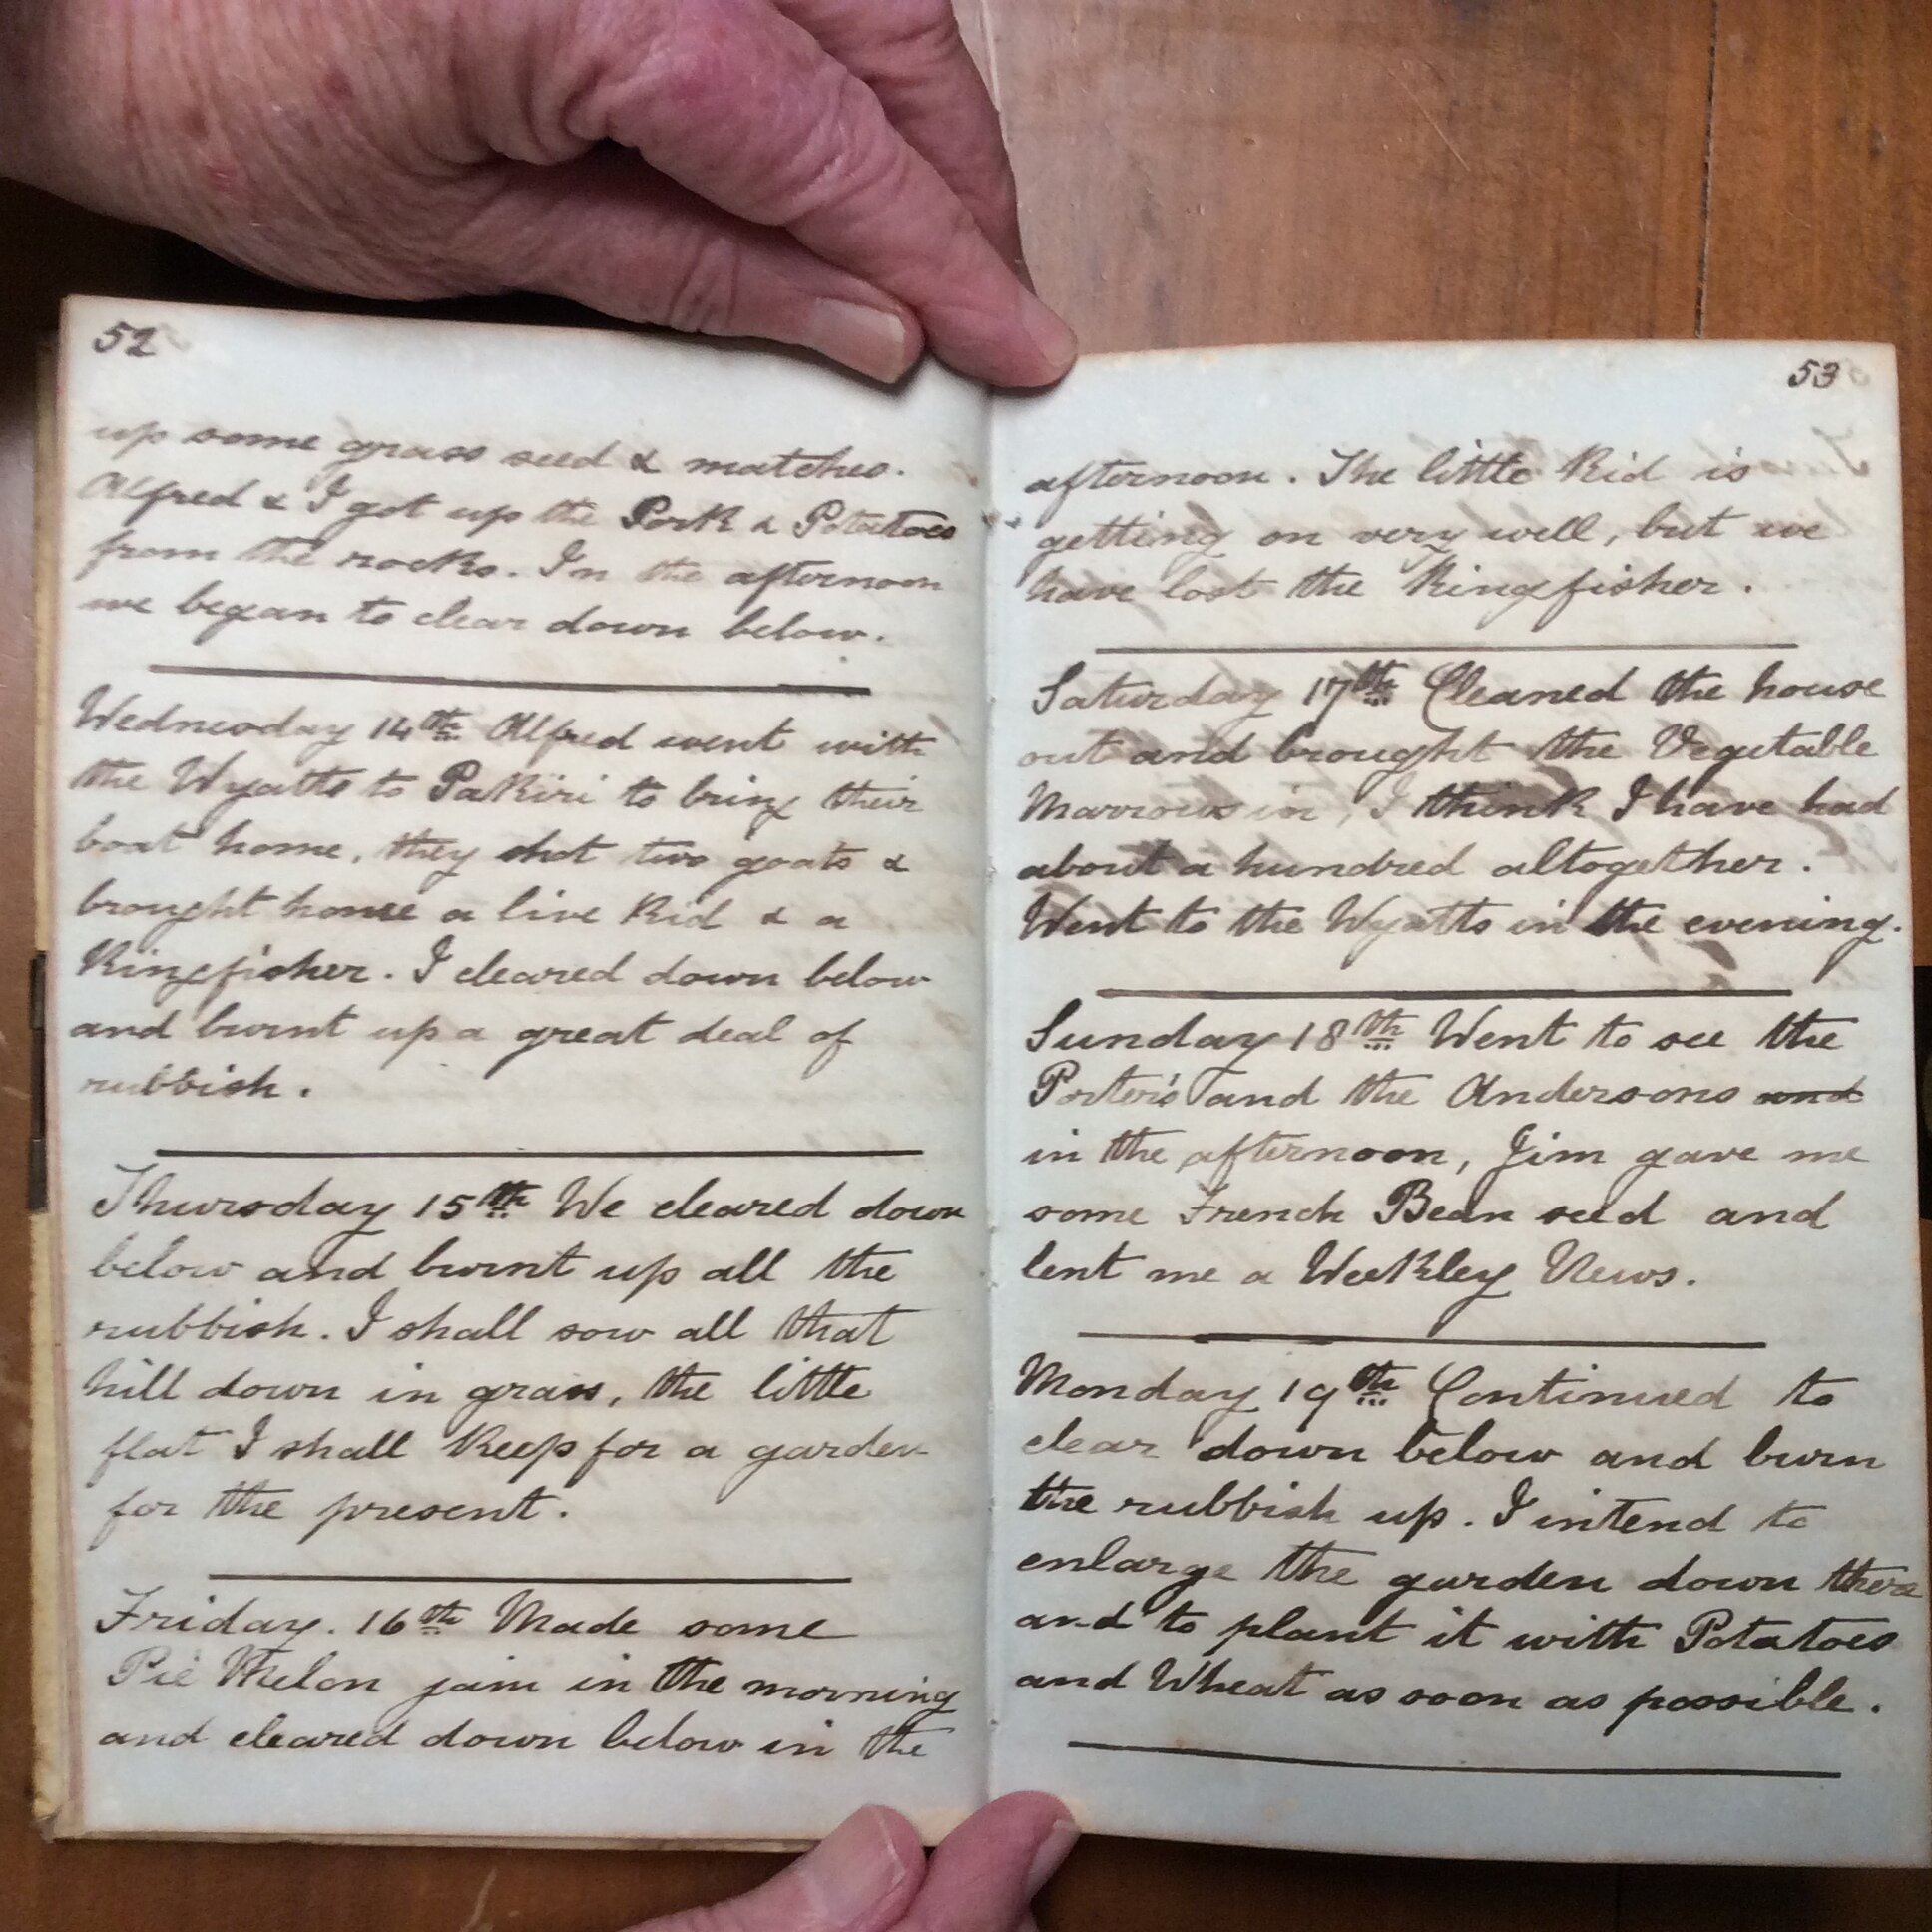 52
up some grass seed & matches.
Alfred & I got up the Pork & Potatoes
from the rocks. In the afternoon
we began to clear down below.
Wednesday 14th Alfred went with
the Wyatts to Pakiri to bring their
boat home, they shot two goats &
brought home a live Kid & a
Kingfisher. I cleared down below
and burnt up a great deal of
rubbish.
Thursday 15th We cleared down
below and burnt up all the
rubbish. I shall sow all that
hill down in grass, the little
flat I shall keep for a garden
for the present.
Friday. 16th Made some
Pie Melon jam in the morning
and cleared down below in the
53
afternoon. The little Kid is
getting on very well, but we
have lost the Kingfisher.
Saturday 17th Cleaned the house
out and brought the Vegetable
Marrows in, I think I have had
about a hundred altogether.
Went to the Wyatts in the evening.
Sunday 18th Went to see the
Porter's and the Andersons and
in the afternoon, Jim gave me
some French Bean seed and
lent me a Weekley News.
Monday 19th Continued to
clear down below and burn
the rubbish up. I intend to
enlarge the garden down there
and to plant it with Potatoes
and Wheat as soon as possible.